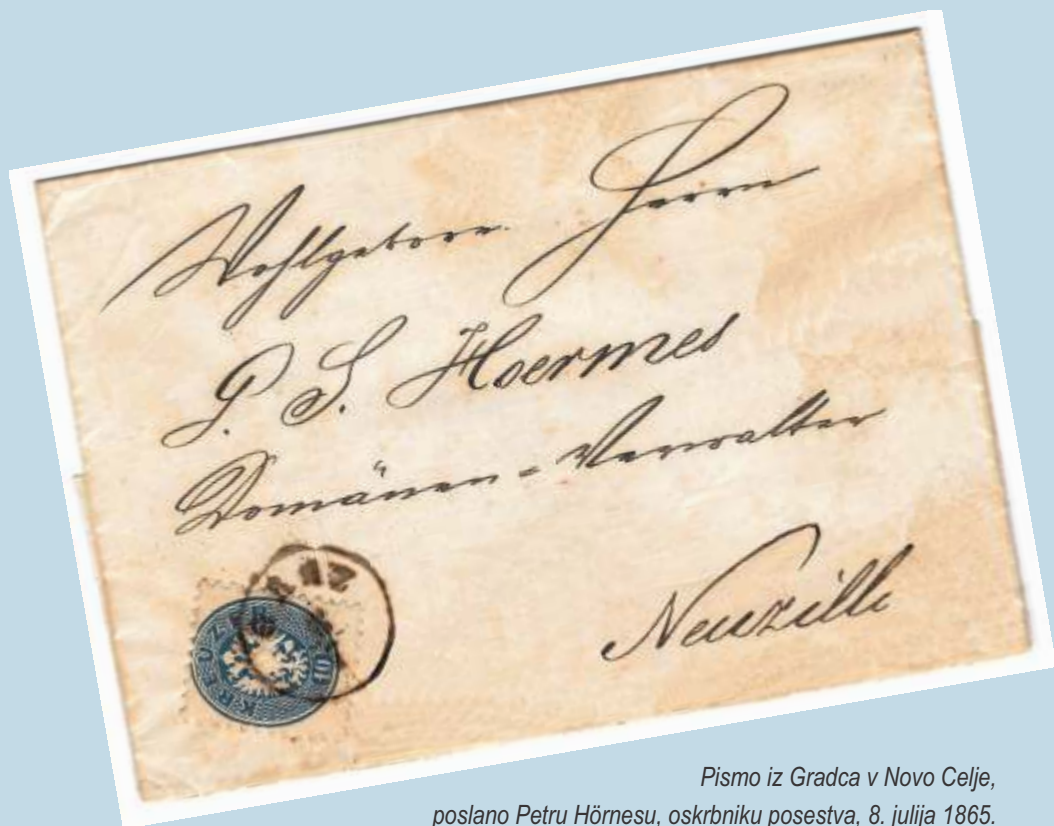 Wohlgeborn. Herrn
P. S. Hoermes
Domänen-Verwalter
Neuzilli
KREUZER
Pismo iz Gradca v Novo Celje,
poslano Petru Hörnesu, oskrbniku posestva, 8. julija 1865.